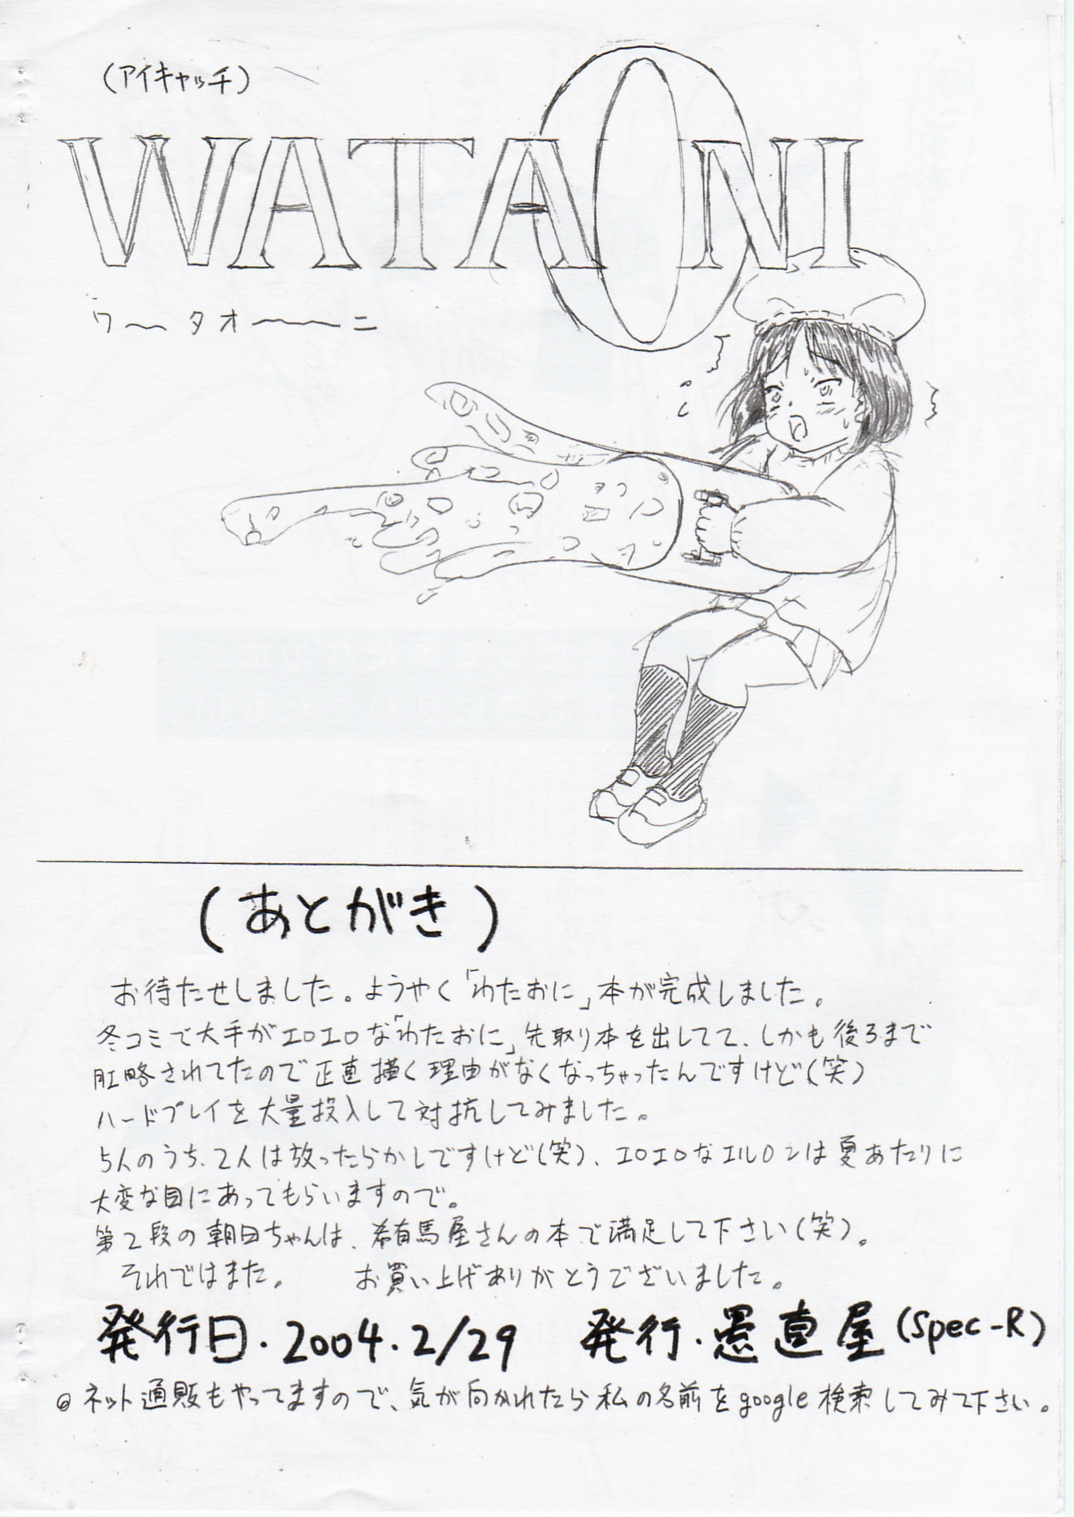 (アイキャッチ)
WATAONI
ワ～ タオ～～ニ
(あとがき)
お待たせしました。ようやく「わたおに」本が完成しました。
冬コミで大手がエロエロな「わたおに」先取り本を出してて、しかも後ろまで
肛略されてたので正直描く理由がなくなっちゃったんですけど(笑)
ハードプレイを大量投入して対抗してみました。
5人のうち、2人は放ったらかしですけど(笑)、エロエロなエルロンは夏あたりに
大変な目にあってもらいますので。
第2段の朝日ちゃんは、希有馬屋さんの本で満足して下さい(笑)。
それではまた。 お買い上げありがとうございました。
発行日・2004.2/29 発行・愚直屋(Spec-R)
◎ネット通販もやってますので、気が向かれたら私の名前をgoogle検索してみて下さい。